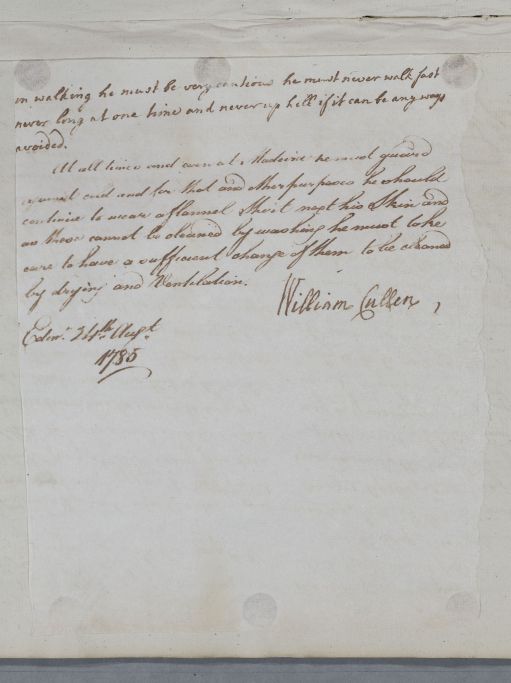 in walking he must be very cautious he must never walk fast
never long at one time and never up hill if it can be any ways
avoided.
At all times and even at Madeira he must guard
against cold and for that and other purposes he should
continue to wear a flannel Shirt next his Skin and
as these cannot be cleaned by washing he must take
care to have a sufficient change of them to be cleaned
by drying and Ventilation.
William Cullen
Edinr. 24th Augt.
1785